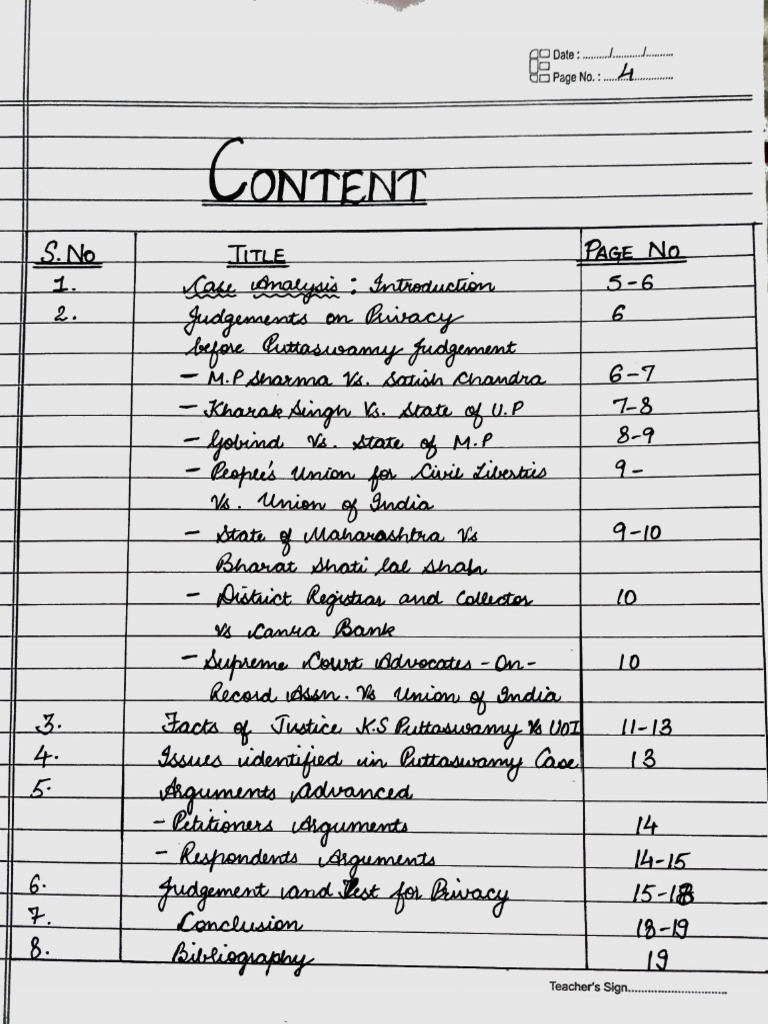 Date : ........./........../.........
Page No. : .....4..............
CONTENT
S. No TITLE PAGE NO
1. Case Analysis : Introduction 5-6
2. Judgements on Privacy 6
before Puttaswamy Judgement
- M.P Sharma Vs. Satish Chandra 6-7
- Kharak Singh Vs. State of U.P 7-8
- Gobind Vs. State of M.P 8-9
- People's Union for Civil Liberties 9-
Vs. Union of India
- State of Maharashtra Vs 9-10
Bharat Shati lal Shah
- District Registrar and Collector 10
vs Canra Bank
- Supreme Court Advocates-On- 10
Record Assn. Vs Union of India
3. Facts of Justice K.S Puttaswamy Vs UOI 11-13
4. Issues identified in Puttaswamy Case 13
5. Arguments Advanced
- Petitioners Arguments 14
- Respondents Arguments 14-15
6. Judgement and Test for Privacy 15-18
7. Conclusion 18-19
8. Bibliography 19
Teacher's Sign.............................